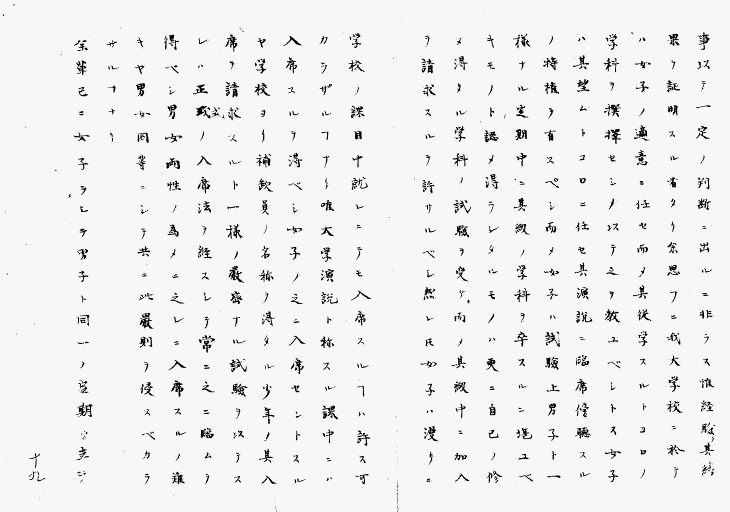 事以テ一定ノ判断ニ出ルニ非ラス惟経験其結
果ヲ証明スル者タリ余思フニ我大学校ニ於テ
ハ女子ノ適意ニ任セ而メ其従学スルトコロノ
学科ヲ撰擇セシメ以テ之ヲ教ユベシトス女子
ハ其望ムトコロニ任セ其演説ニ臨席傍聴スル
ノ特権ヲ有スベシ而メ女子ハ試験上男子ト一
様ナル定期中ニ其級ノ学科ヲ卒スルニ堪ユベ
キモノト認メ得ラレタルモノハ更ニ自己ノ修
メ得タル学科ノ試験ヲ受ケ而メ其級中ニ加入
ヲ請求スルヲ許サルベシ然レ𪜈女子ハ漫リニ
学校ノ課目中就レニテモ入席スルヿハ許ス可
カラザルヿナリ唯大学演説ト称スル課中ニハ
入席スルヲ得ベシ女子ノ之ニ入席セントスル
ヤ学校ヨリ補欠員ノ名称ヲ得タル少年ノ其入
席ヲ請求スルト一様ノ厳密ナル試験ヲ以テス
レハ正式ノ入席法ヲ経スシテ常ニ之ニ臨ムヲ
得ベシ男女両性ノ為メニ之レニ入席スルノ難
キヤ男女同等ニシテ共ニ此厳則ヲ侵スベカラ
サルヿナリ
余輩已ニ女子ヲシテ男子ト同一ノ定期
十九